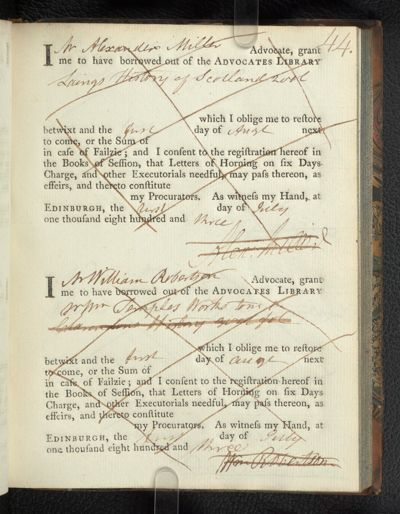 44.
I Mr Alexander Miller Advocate, grant
me to have borrowed out of the ADVOCATES LIBRARY
Laings History of Scotland 2 vol
which I oblige me to restore
betwixt and the first day of Augt next
to come, or the Sum of
in case of Failzie; and I consent to the registration hereof in
the Books of Session, that Letters of Horning on six Days
Charge, and other Executorials needful, may pass thereon, as
effeirs, and thereto constitute
my Procurators. As witness my Hand, at
EDINBURGH, the first day of July
one thousand eight hundred and three
Alex. Miller
I Mr William Robertson Advocate, grant
me to have borrowed out of the ADVOCATES LIBRARY
Sr Wm Temples Works
History
which I oblige me to restore
betwixt and the first day of Augt next
to come, or the Sum of
in case of Failzie; and I consent to the registration hereof in
the Books of Session, that Letters of Horning on six Days
Charge, and other Executorials needful, may pass thereon, as
effeirs, and thereto constitute
my Procurators. As witness my Hand, at
EDINBURGH, the first day of July
one thousand eight hundred and three
Wm Robertson